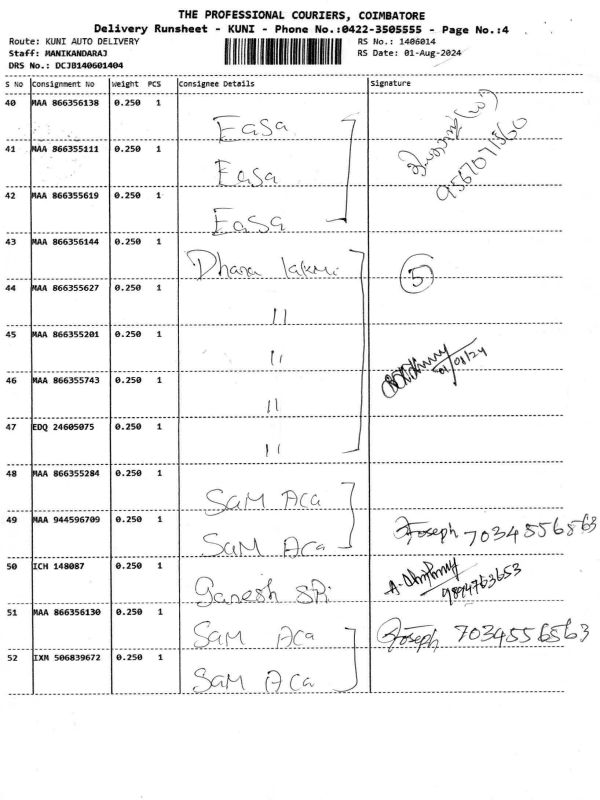 THE PROFESSIONAL COURIERS, COIMBATORE
Delivery Runsheet - KUNI - Phone No.:0422-3505555 - Page No.:4
Route: KUNI AUTO DELIVERY RS No.: 1406014
Staff: MANIKANDARAJ RS Date: 01-Aug-2024
DRS No.: DCJB140601404
S No Consignment No Weight PCS Consignee Details Signature
40 MAA 866356138 0.250 1 EaSa
41 MAA 866355111 0.250 1 EaSa
42 MAA 866355619 0.250 1 EaSa
43 MAA 866356144 0.250 1 Dhana lakmi 5
44 MAA 866355627 0.250 1 11
45 MAA 866355201 0.250 1 11
46 MAA 866355743 0.250 1 11 01/08/24
47 EDQ 24605075 0.250 1 11
48 MAA 866355284 0.250 1 SaM ACa
49 MAA 944596709 0.250 1 SaM ACa Joseph 7034556563
50 ICH 148087 0.250 1 Ganesh SRi 9894763653
51 MAA 866356130 0.250 1 SaM ACa Joseph 7034556563
52 IXM 506839672 0.250 1 SaM ACa